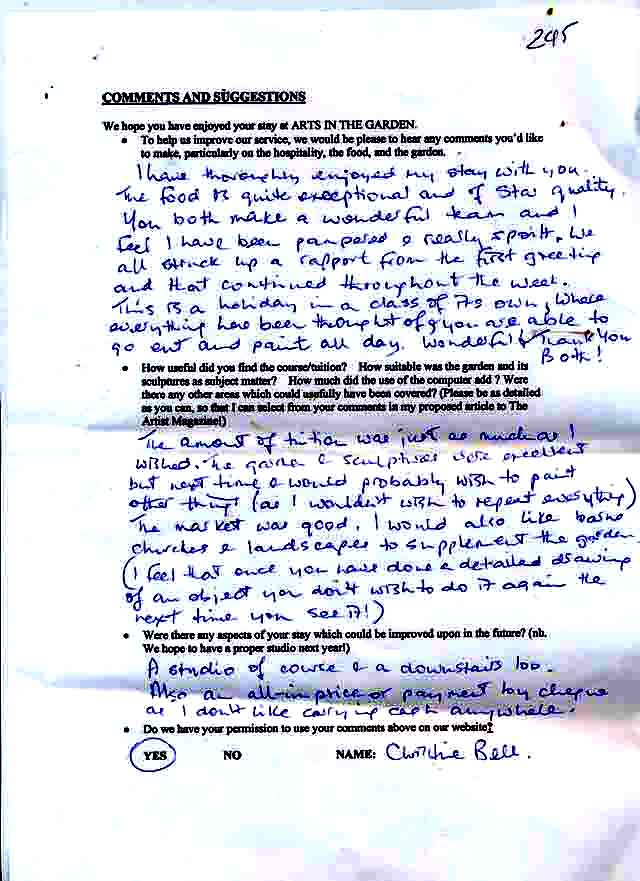 245
COMMENTS AND SUGGESTIONS
We hope you have enjoyed your stay at ARTS IN THE GARDEN.
• To help us improve our service, we would be pleased to hear any comments you'd like
to make, particularly on the hospitality, the food, and the garden.
I have thoroughly enjoyed my stay with you.
The food is quite exceptional and of Star quality.
You both make a wonderful team and I
feel I have been pampered & really spoilt. We
all struck up a rapport from the first greeting
and that continued throughout the week.
This is a holiday in a class of its own, where
everything has been thought of & you are able to
go out and paint all day. Wonderful & Thank You
Both!
• How useful did you find the course/tuition? How suitable was the garden and its
sculptures as subject matter? How much did the use of the computer add ? Were
there any other areas which could usefully have been covered? (Please be as detailed
as you can, so that I can select from your comments in my proposed article to The
Artist Magazine!)
The amount of tuition was just as much as I
wished. The garden & sculptures were excellent
but next time I would probably wish to paint
other things (as I wouldn't wish to repeat everything)
The market was good. I would also like barns
churches & landscapes to supplement the garden
(I feel that once you have done a detailed drawing
of an object you don't wish to do it again the
next time you see it!)
• Were there any aspects of your stay which could be improved upon in the future? (nb.
We hope to have a proper studio next year!)
A studio of course & a downstairs loo.
Also an all-in price or payment by cheque
as I don't like carrying cash anywhere.
• Do we have your permission to use your comments above on our website?
YES NO NAME: Christine Bell.